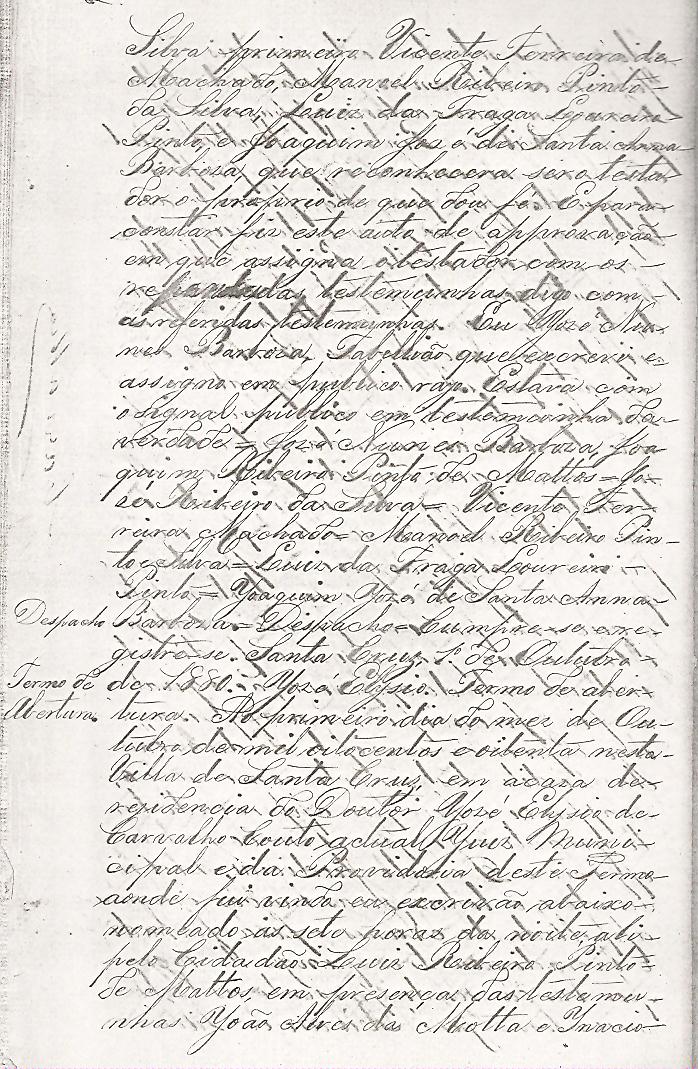 Silva primeiro Vicente Ferreira de
Machado, Manoel Ribeiro Pinto
da Silva, Luiz da Fraga Loureiro
Pinto e Joaquim Jozé de Santa Anna
Barboza que reconhecera ser o testa
dor o proprio de que dou fé. E para
constar fiz este auto de approvação
em que assigna o testador com os
testemunhas digo com
as referidas testemunhas. Eu Jozé Nu-
nes Barboza, Tabellião que escrevi e
assigno em publico razo. Estava com
o signal publico em testemunho da
verdade = Jozé Nunes Barboza, Joa
quim Ribeiro Pinto de Mattos = Jo-
zé Ribeiro da Silva = Vicente Fer-
reira Machado = Manoel Ribeiro Pin-
to e Silva = Luiz da Fraga Loureiro -
Pinto = Joaquim Jozé de Santa Anna
Despacho Barboza = Despacho = Cumpre-se e re-
gistre-se. Santa Cruz, 1º de Outubro
Termo de de 1880. Jozé Elysio. Termo de aber-
Abertura. tura. Ao primeiro dia do mez de Ou-
tubro de mil oitocentos e oitenta nesta
Villa de Santa Cruz, em a caza de
rezidencia do Doutor Jozé Elysio de
Carvalho Couto, actual Juiz Muni-
cipal e da Provedoria deste Termo
aonde fui vindo eu escrivão abaixo
nomeado as sete horas da noite, ahi
pelo Cidadão Luiz Ribeiro Pinto
de Mattos, em presença das testemu-
nhas João Alves da Motta e Ignacio